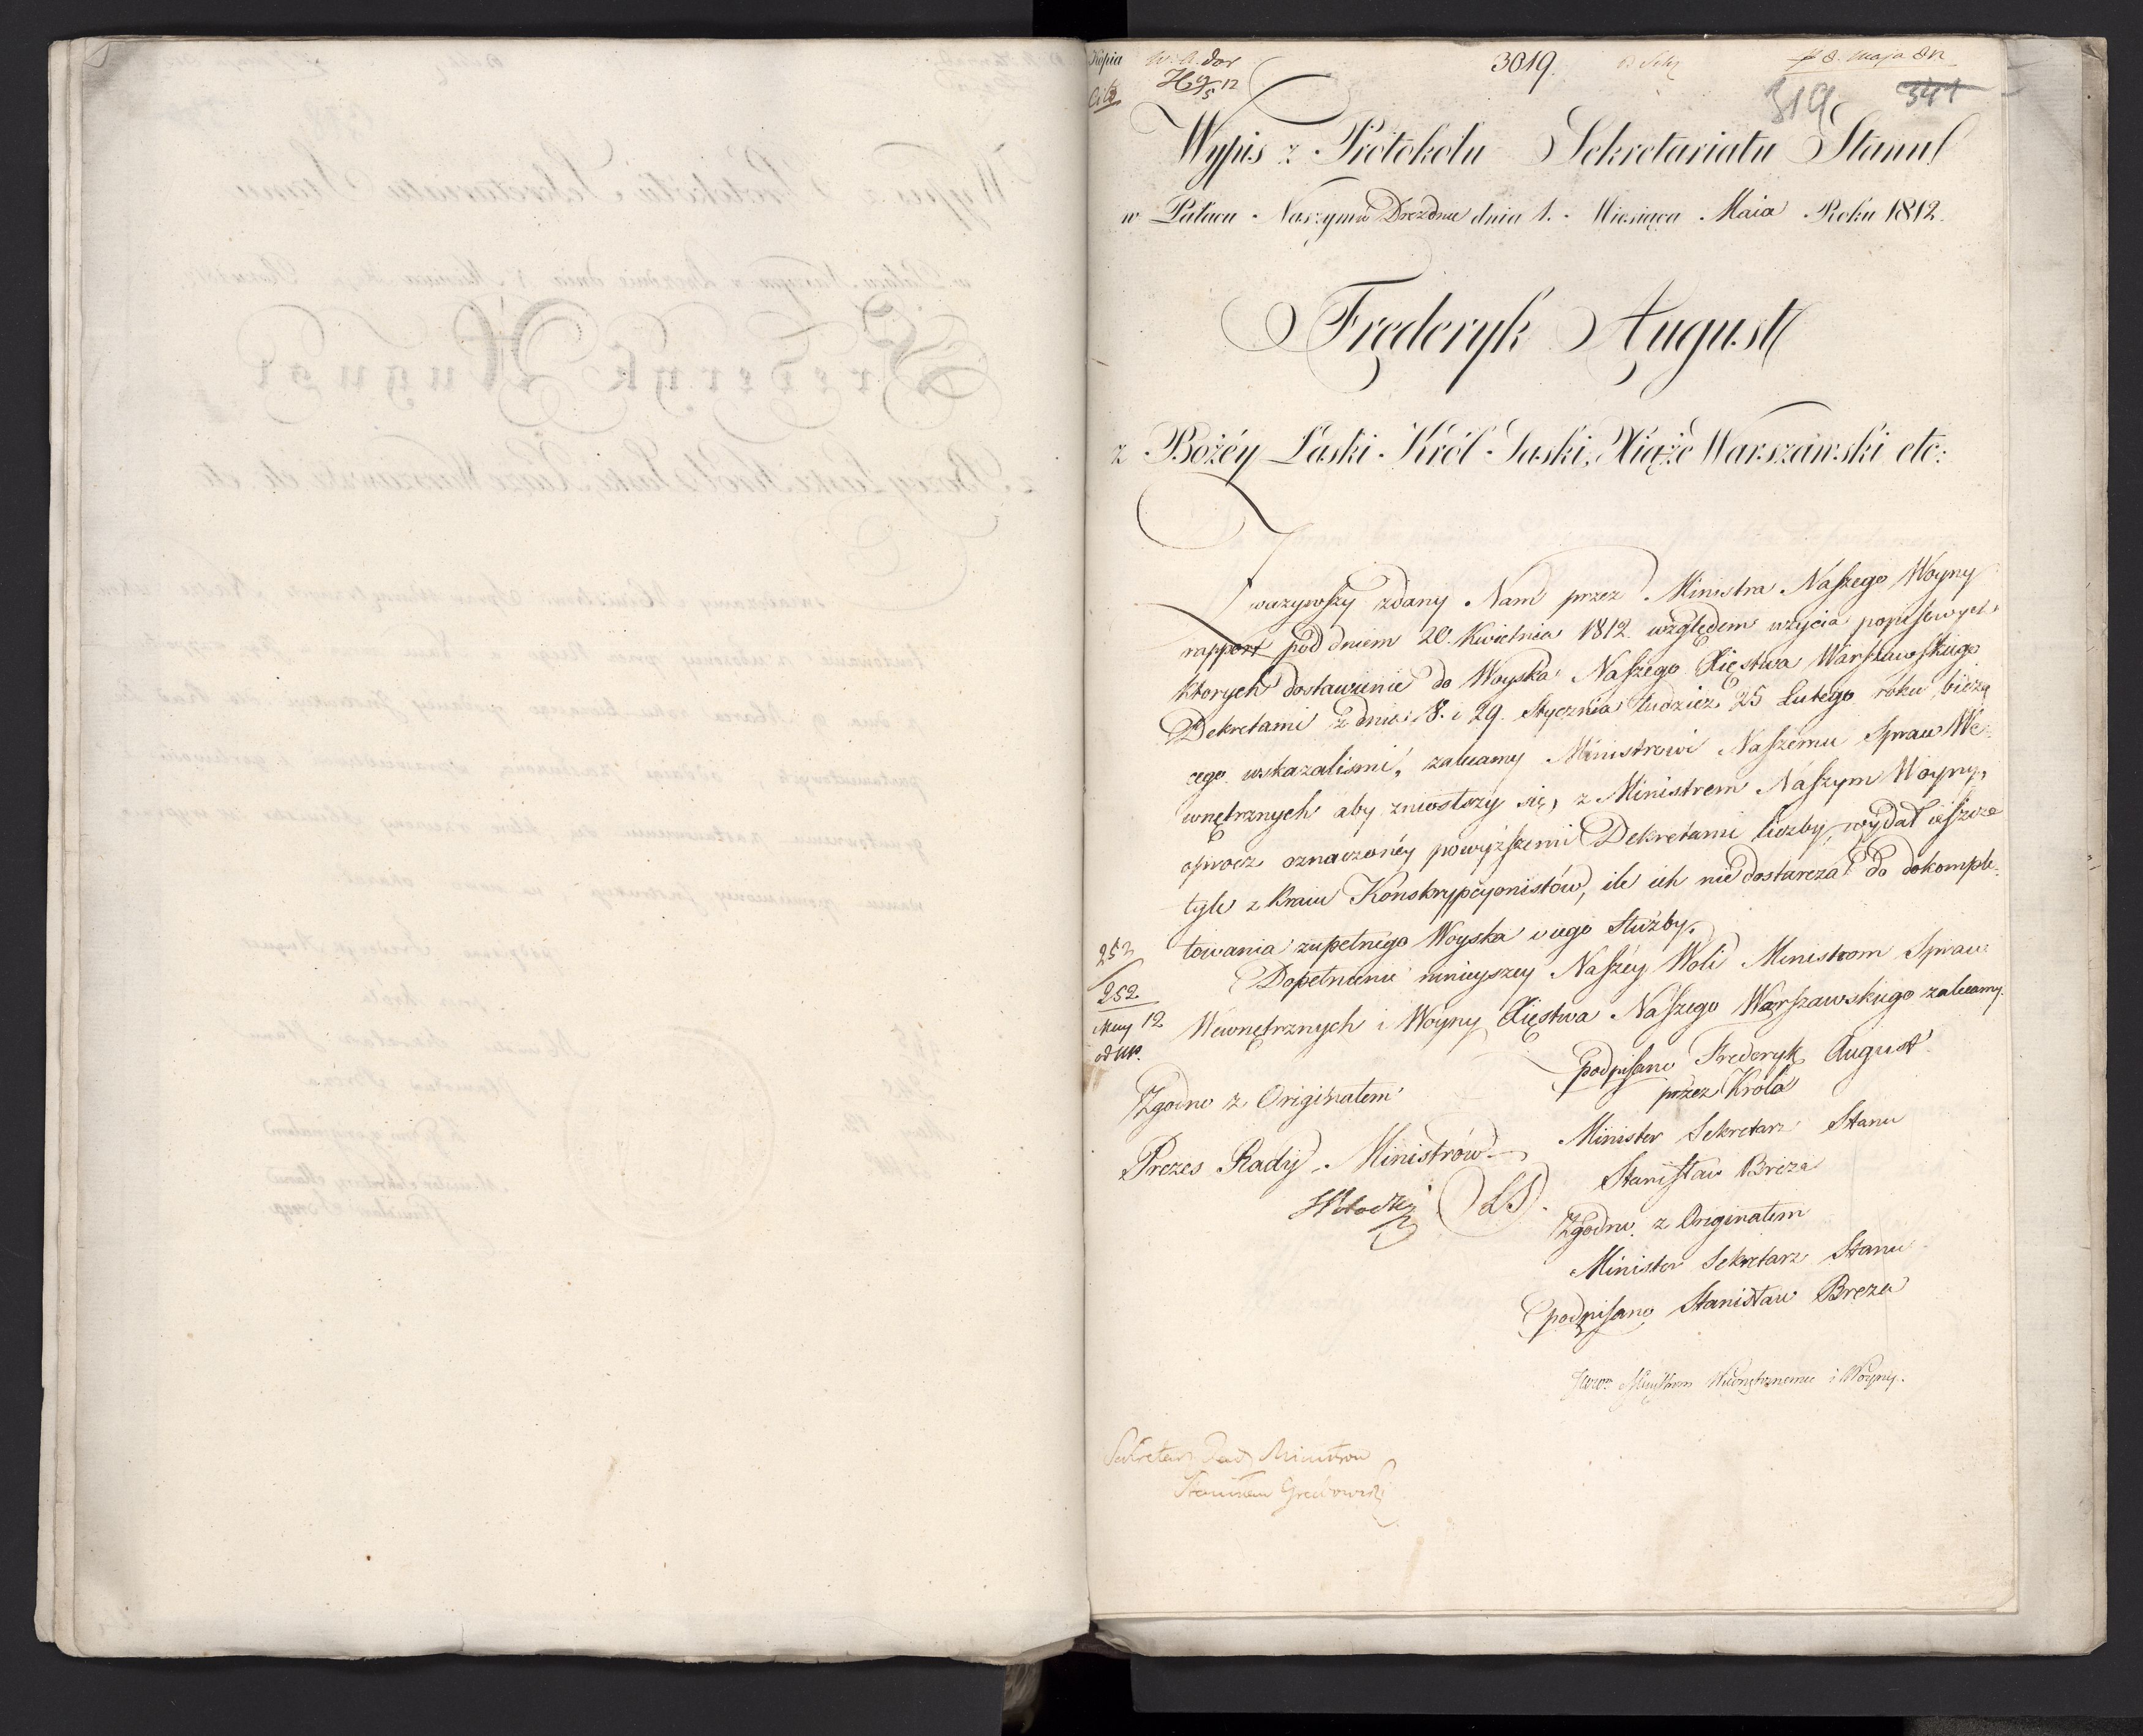 Kopia
Cito
3019.
8. maja 812
319 341
Wypis z Protokołu Sekretariatu Stanu
w Pałacu Naszym w Dreznie dnia 1. Miesiąca Maia Roku 1812.
Frederyk August
z Bożéy Łaski Król Saski, Xiąże Warszawski etc:
Zważywszy zdany Nam przez Ministra Naszego Woyny
rapport pod dniem 20. Kwietnia 1812. względem użycia popisowych
ktorych dostawienie do Woyska Naszego Xięstwa Warszawskiego
Dekretami z dnia 8. i 29. Stycznia tudzież 25 Lutego roku bieżą
cego wskazalismi, zalecamy Ministrowi Naszemu Spraw We-
wnętrznych aby zniosłszy się, z Ministrem Naszym Woyny,
oprocz oznaczonéy powyższemi Dekretami liczby, wydał ieszcze
tyle z Kraiu Konskrypcyonistów, ile ich nie dostarcza do dokomple-
towania zupełnego Woyska i iego Służby.
Dopełnienie ninieyszey Naszéy Woli Ministrom Spraw
Wewnętrznych i Woyny Xięstwa Naszego Warszawskiego zalecamy.
252
252
May 12
podpisano Frederyk August
przez Króla
Minister Sekretarz Stanu
Stanisław Breza
Zgodno z Originałem
Prezes Rady Ministrów
(LS).
Zgodno z Originałem
Minister Sekretarz Stanu
podpisano Stanisław Breza
Wewnętrznemu i Woyny.
Sekretarz Rady Ministrow
Stanisław Grabowski